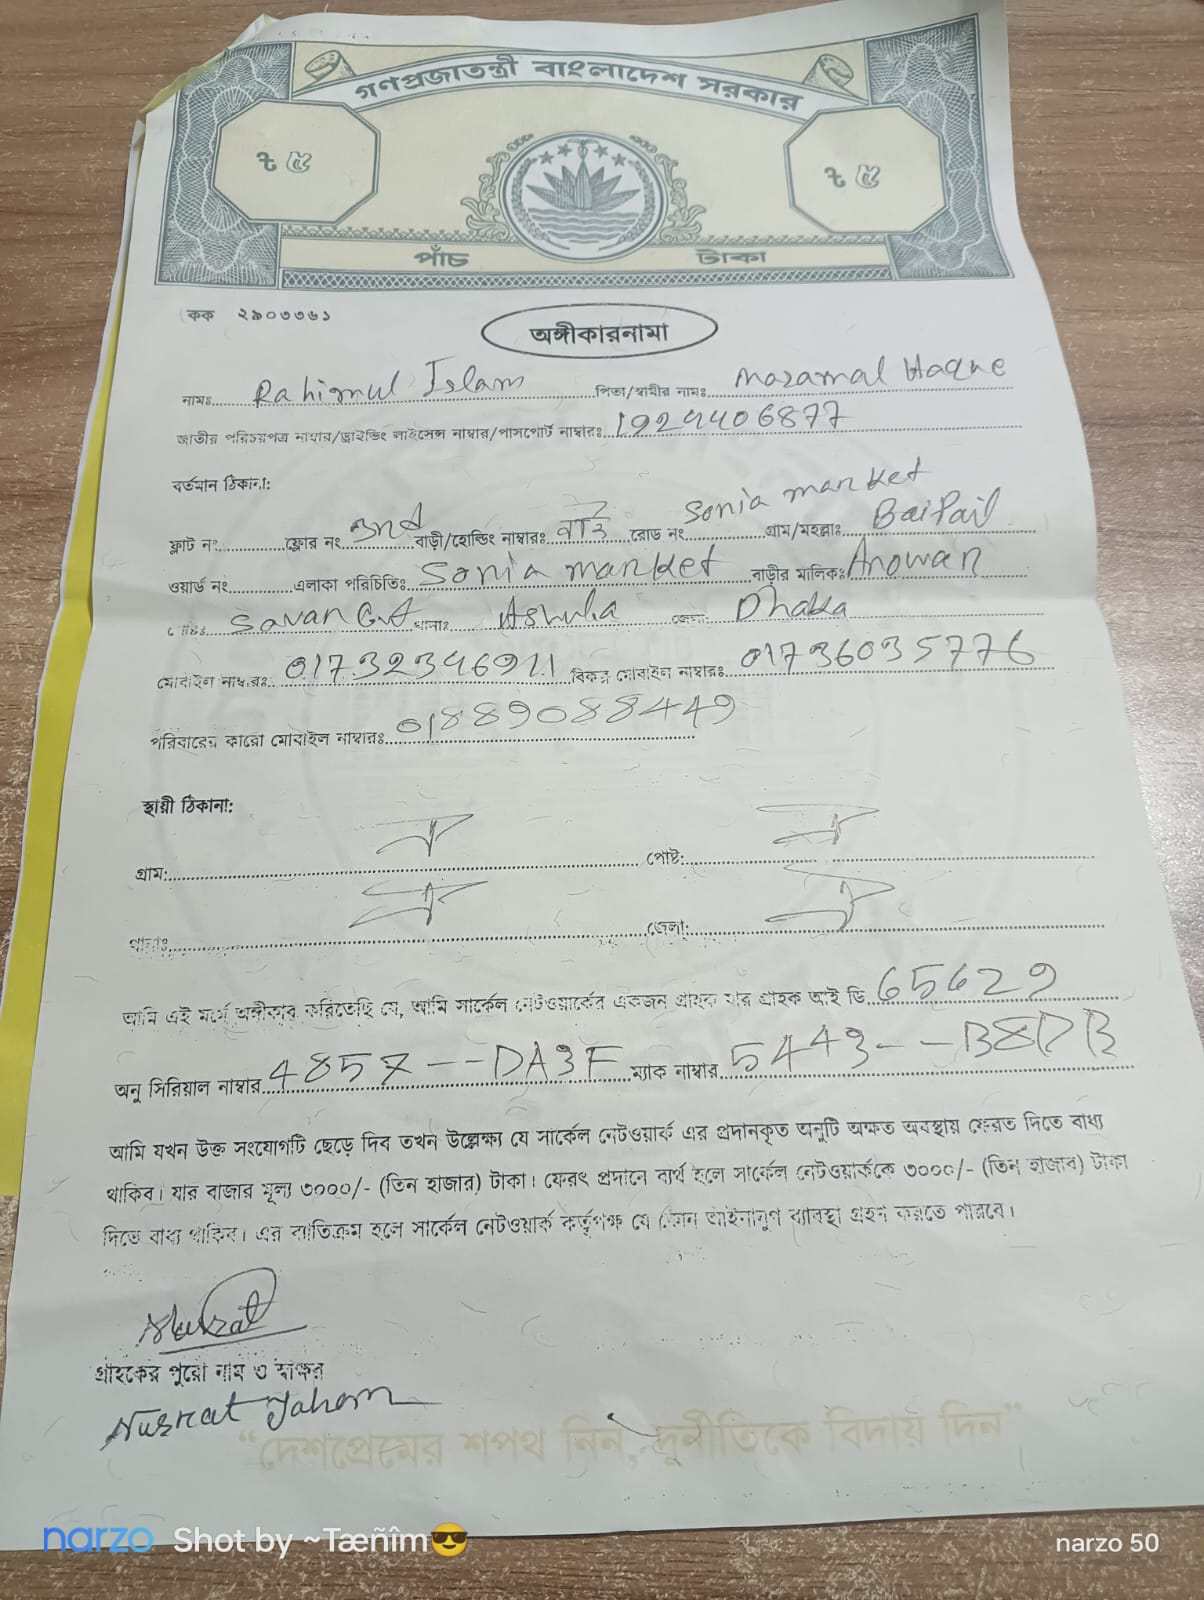 গণপ্রজাতন্ত্রী বাংলাদেশ সরকার
৳ ৫ ৳ ৫
পাঁচ টাকা
কক ২৯০৩৩৬১
অঙ্গীকারনামা
নামঃ Rahimul Islam পিতা/স্বামীর নামঃ Mozamal Haque
জাতীয় পরিচয়পত্র নাম্বার/ড্রাইভিং লাইসেন্স নাম্বার/পাসপোর্ট নাম্বারঃ 1924406877
বর্তমান ঠিকানা:
ফ্লাট নং ফ্লোর নং 3rd বাড়ী/হোল্ডিং নাম্বারঃ নাই রোড নং Sonia market গ্রাম/মহল্লাঃ Baipail
ওয়ার্ড নং এলাকা পরিচিতিঃ Sonia market বাড়ীর মালিকঃ Anowar
Savar থানাঃ Ashulia জেলা: Dhaka
মোবাইল নাম্বারঃ 01732346911 বিকল্প মোবাইল নাম্বারঃ 01736035776
পরিবারের কারো মোবাইল নাম্বারঃ 01889088449
স্থায়ী ঠিকানা:
গ্রাম: পোষ্ট:
থানাঃ জেলা:
আমি এই মর্মে অঙ্গীকার করিতেছি যে, আমি সার্কেল নেটওয়ার্কের একজন গ্রাহক যার গ্রাহক আই ডি 65629
অনু সিরিয়াল নাম্বার 4857--DA3F ম্যাক নাম্বার 5443--B8DB
আমি যখন উক্ত সংযোগটি ছেড়ে দিব তখন উল্লেক্ষ্য যে সার্কেল নেটওয়ার্ক এর প্রদানকৃত অনুটি অক্ষত অবস্থায় ফেরত দিতে বাধ্য
থাকিব। যার বাজার মূল্য ৩০০০/- (তিন হাজার) টাকা। ফেরৎ প্রদানে ব্যর্থ হলে সার্কেল নেটওয়ার্ককে ৩০০০/- (তিন হাজার) টাকা
দিতে বাধ্য থাকিব। এর ব্যতিক্রম হলে সার্কেল নেটওয়ার্ক কর্তৃপক্ষ যে কোন আইনানুগ ব্যবস্থা গ্রহন করতে পারবে।
Nusrat
গ্রাহকের পুরো নাম ও স্বাক্ষর
Nusrat Jahan
“দেশপ্রেমের শপথ নিন, দুর্নীতিকে বিদায় দিন”
narzo Shot by ~Tæñîm😎 narzo 50